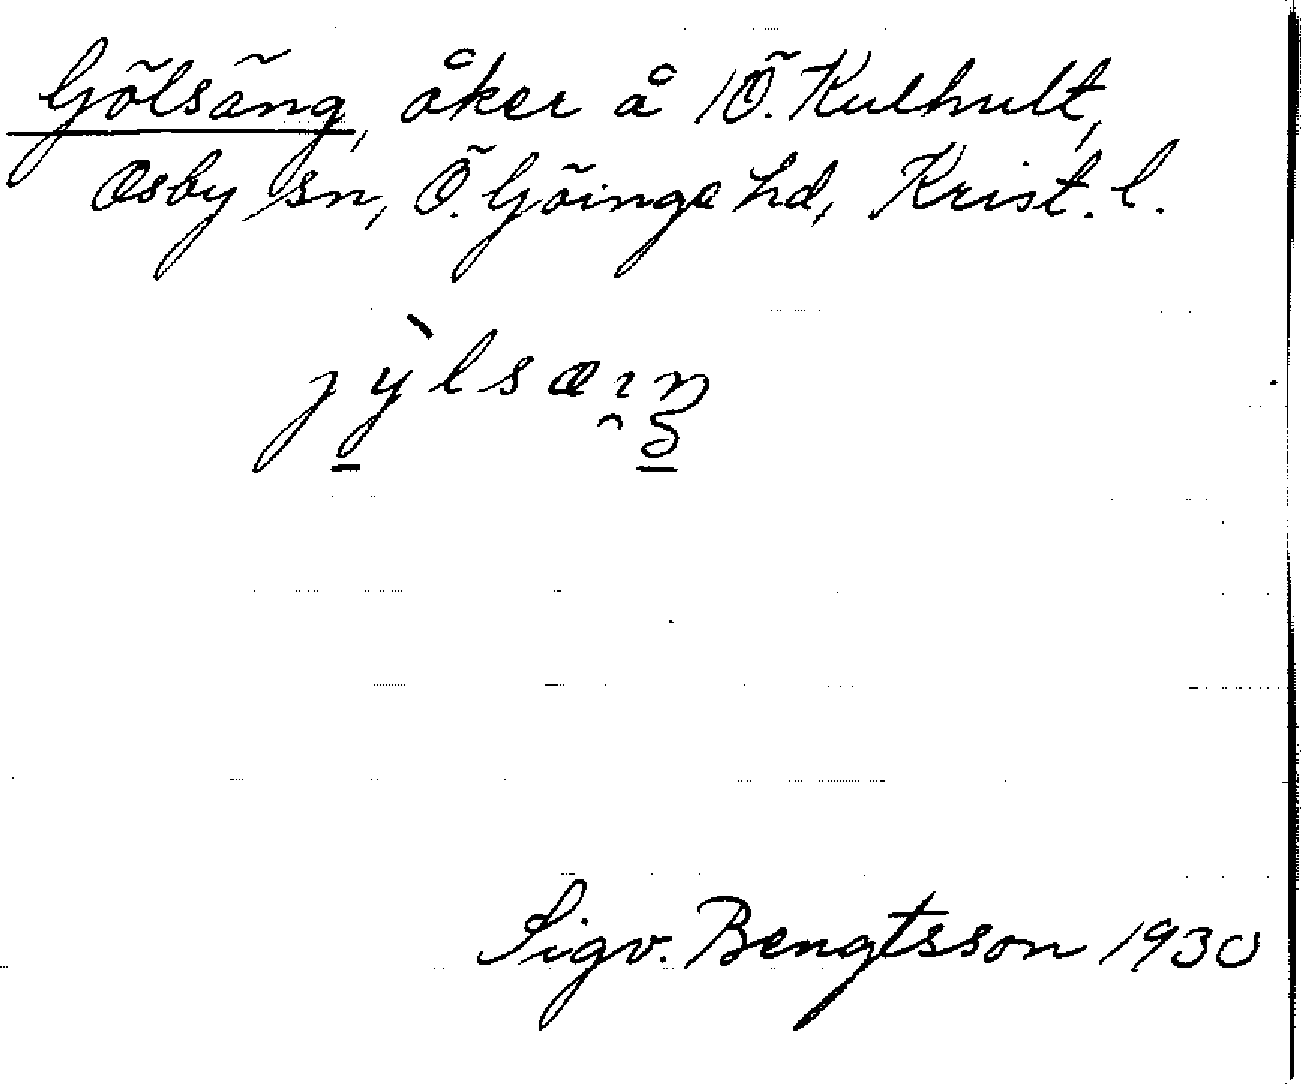 Gölsäng, åker å 1 Ö. Kulhult,
Osby sn, Ö. Göinge hd, Krist. l.
jỳlsæıŋ
Sigv. Bengtsson 1930